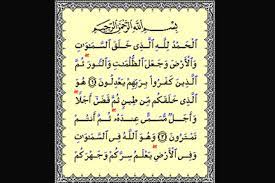 بِسْمِ ٱللَّهِ ٱلرَّحْمَٰنِ ٱلرَّحِيمِ
ٱلْحَمْدُ لِلَّهِ ٱلَّذِى خَلَقَ ٱلسَّمَٰوَٰتِ
وَٱلْأَرْضَ وَجَعَلَ ٱلظُّلُمَٰتِ وَٱلنُّورَ ثُمَّ
ٱلَّذِينَ كَفَرُوا۟ بِرَبِّهِمْ يَعْدِلُونَ ۝١ هُوَ
ٱلَّذِى خَلَقَكُم مِّن طِينٍ ثُمَّ قَضَىٰٓ أَجَلًا
وَأَجَلٌ مُّسَمًّى عِندَهُۥ ثُمَّ أَنتُمْ
تَمْتَرُونَ ۝٢ وَهُوَ ٱللَّهُ فِى ٱلسَّمَٰوَٰتِ
وَفِى ٱلْأَرْضِ يَعْلَمُ سِرَّكُمْ وَجَهْرَكُمْ